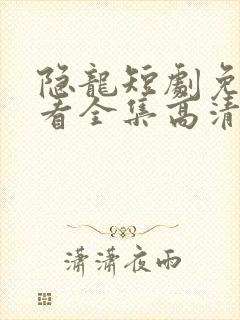 隐龍短劇免
看全集高清
瀟瀟夜雨